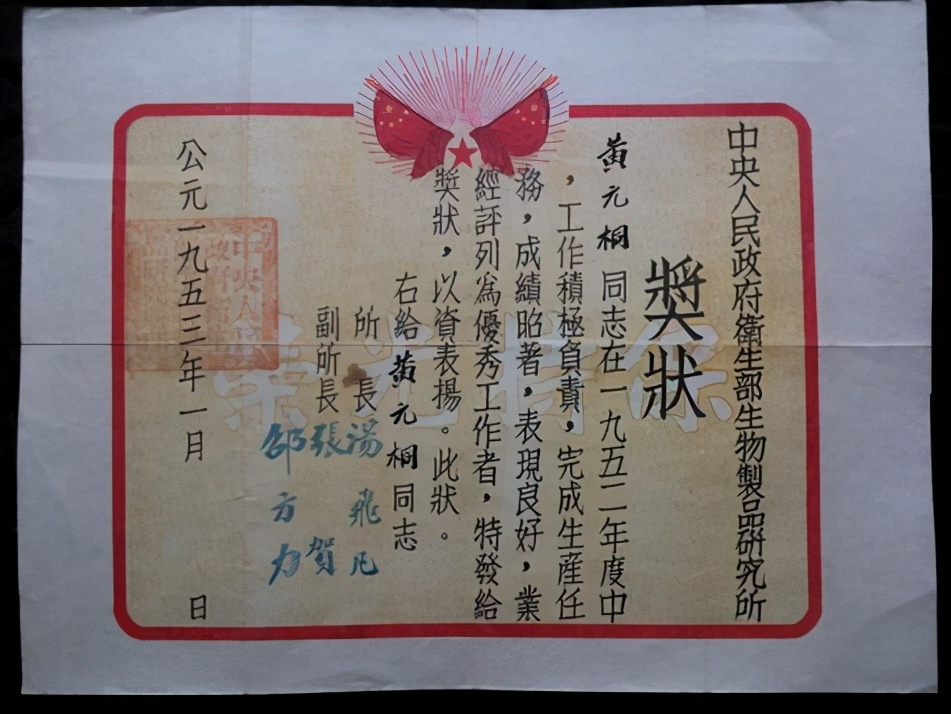 中央人民政府衛生部生物製品研究所
獎狀
黃元桐同志在一九五二年度中
，工作積極負責，完成生產任
務，成績昭著，表現良好，業
經評列為優秀工作者，特發給
獎狀，以資表揚。此狀。
右給黃元桐同志
所長湯飛凡
副所長張賀
邵方力
公元一九五三年一月 日
中央人民